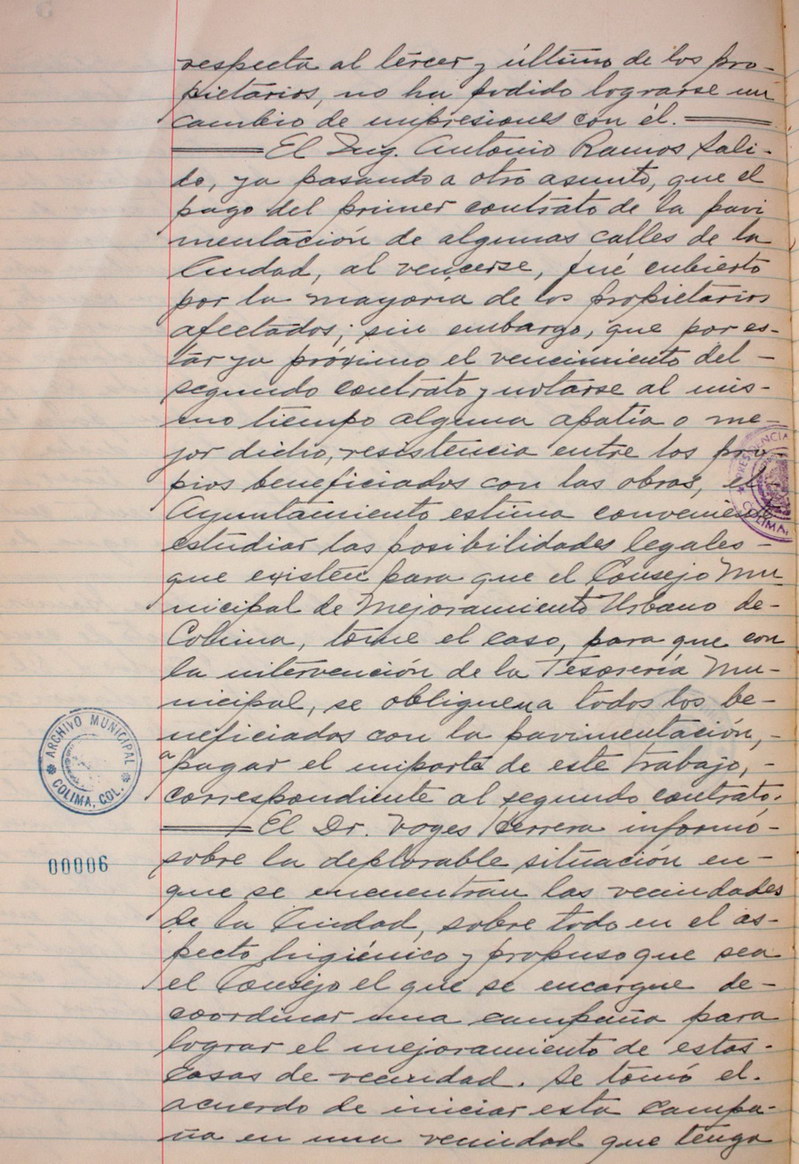 respecta al tercer y último de los pro-
pietarios, no ha podido lograrse un
cambio de impresiones con él.
El Ing. Antonio Ramos Sali-
do, ya pasando a otro asunto, que el
pago del primer contrato de la pavi
mentación de algunas calles de la
Ciudad, al vencerse, fué cubierto
por la mayoría de los propietarios
afectados; sin embargo, que por es-
tar ya próximo el vencimiento del-
segundo contrato y notarse al mis-
mo tiempo alguna apatía o me-
jor dicho, resistencia entre los pro-
pios beneficiados con las obras, el
Ayuntamiento estima conveniente
estudiar las posibilidades legales-
que existen para que el Consejo Mu
nicipal de Mejoramiento Urbano de-
Colima, tome el caso, para que con
la intervención de la Tesorería Mu-
nicipal, se obligue a todos los be-
neficiados con la pavimentación,-
a pagar el importe de este trabajo,-
correspondiente al segundo contrato.
El Dr. Voges Herrera informó-
sobre la deplorable situación en-
que se encuentran las vecindades
de la Ciudad, sobre todo en el as-
pecto higiénico y propuso que sea
el Consejo el que se encargue de-
coordinar una campaña para
lograr el mejoramiento de estas-
casas de vecindad. Se tomó el.
acuerdo de iniciar esta campa-
ña en una vecindad que tenga
ARCHIVO MUNICIPAL
COLIMA, COL.
00006
PRESIDENCIA
COLIMA,